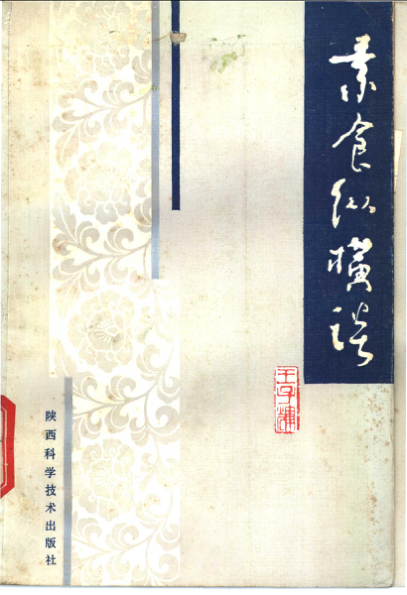 素食纵横谈
王子辉
陕西科学技术出版社